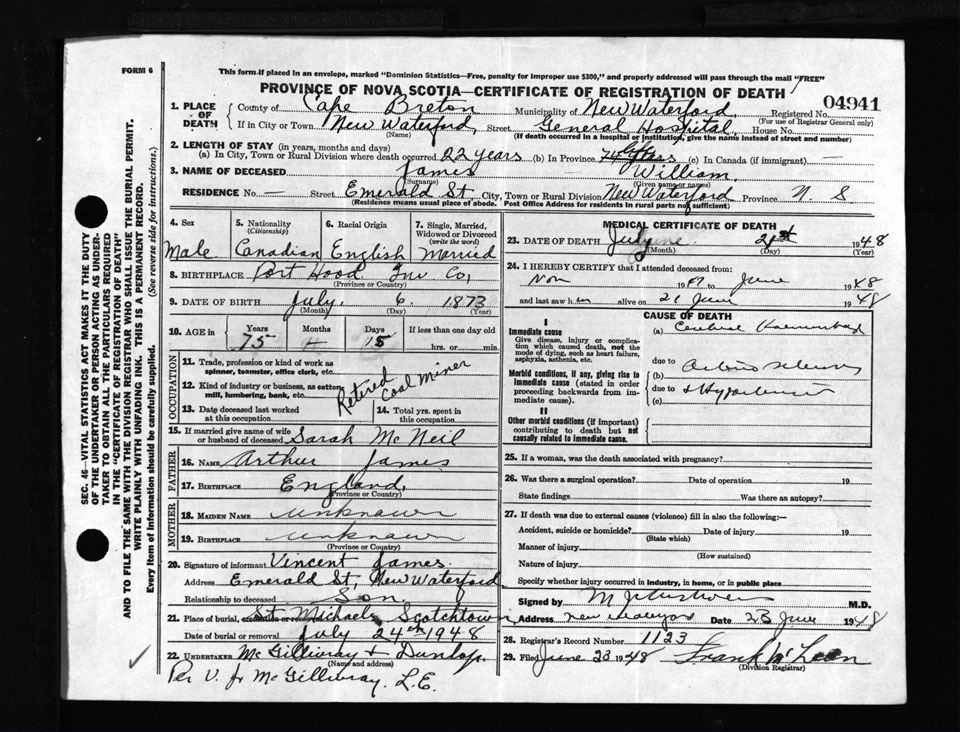 FORM 6
This form if placed in an envelope, marked "Dominion Statistics—Free, penalty for improper use $300," and properly addressed will pass through the mail "FREE"
PROVINCE OF NOVA SCOTIA—CERTIFICATE OF REGISTRATION OF DEATH
04941
1. PLACE OF DEATH County of Cape Breton Municipality of New Waterford, Registered No.
(Name) (For use of Registrar General only)
If in City or Town New Waterford, Street General Hospital, House No.
(If death occurred in a hospital or institution, give the name instead of street and number)
2. LENGTH OF STAY (in years, months and days)
(a) In City, Town or Rural Division where death occurred 22 years (b) In Province life (c) In Canada (if immigrant) —
3. NAME OF DECEASED James William.
(Surname) (Given name or names)
RESIDENCE No. — Street Emerald St. City, Town or Rural Division New Waterford Province N. S
(Residence means usual place of abode. Post Office Address for residents in rural parts not sufficient)
4. Sex Male
5. Nationality (Citizenship) Canadian
6. Racial Origin English
7. Single, Married, Widowed or Divorced (write the word) Married
8. BIRTHPLACE Port Hood Inv. Co,
(Province or Country)
9. DATE OF BIRTH July. 6. 1873
(Month) (Day) (Year)
10. AGE in Years Months Days If less than one day old
75 15 hrs. or min.
OCCUPATION
11. Trade, profession or kind of work as spinner, teamster, office clerk, etc.
12. Kind of industry or business, as cotton mill, lumbering, bank, etc.
Retired Coal Miner
13. Date deceased last worked at this occupation
14. Total yrs. spent in this occupation
15. If married give name of wife or husband of deceased Sarah McNeil
FATHER
16. NAME Arthur James
17. BIRTHPLACE England,
(Province or Country)
MOTHER
18. MAIDEN NAME unknown
19. BIRTHPLACE unknown
(Province or Country)
20. Signature of informant Vincent James.
Address Emerald St, New Waterford
Relationship to deceased Son.
21. Place of burial, cremation or removal St Michaels, Scotchtown,
Date of burial or removal July 24th 1948
22. UNDERTAKER McGillivray & Dunlop.
(Name and address)
Per V. Jr McGillivray. L.E.
MEDICAL CERTIFICATE OF DEATH
23. DATE OF DEATH July 21st 1948
(Month) (Day) (Year)
24. I HEREBY CERTIFY that I attended deceased from:
Nov 19 to June 1948
and last saw him alive on 21 June 1948
CAUSE OF DEATH
I
Immediate cause
Give disease, injury or complication which caused death, not the mode of dying, such as heart failure, asphyxia, asthenia, etc.
(a) Cerebral
due to
(b)
Morbid conditions, if any, giving rise to immediate cause (stated in order proceeding backwards from immediate cause).
due to
(c)
II
Other morbid conditions (if important) contributing to death but not causally related to immediate cause.
25. If a woman, was the death associated with pregnancy?
26. Was there a surgical operation? Date of operation 19
State findings Was there an autopsy?
27. If death was due to external causes (violence) fill in also the following:—
Accident, suicide or homicide? Date of injury 19
(State which)
Manner of injury
(How sustained)
Nature of injury
Specify whether injury occurred in industry, in home, or in public place
Signed by M.D.
Address Date 23 June 1948
28. Registrar's Record Number 1123
29. Filed June 23 1948 Frank McLean
(Division Registrar)
SEC. 46—VITAL STATISTICS ACT MAKES IT THE DUTY
OF THE UNDERTAKER OR PERSON ACTING AS UNDERTAKER TO OBTAIN ALL THE PARTICULARS REQUIRED
IN THE "CERTIFICATE OF REGISTRATION OF DEATH"
AND TO FILE THE SAME WITH THE DIVISION REGISTRAR WHO SHALL ISSUE THE BURIAL PERMIT.
WRITE PLAINLY WITH UNFADING INK. THIS IS A PERMANENT RECORD.
Every item of information should be carefully supplied. (See reverse side for instructions.)